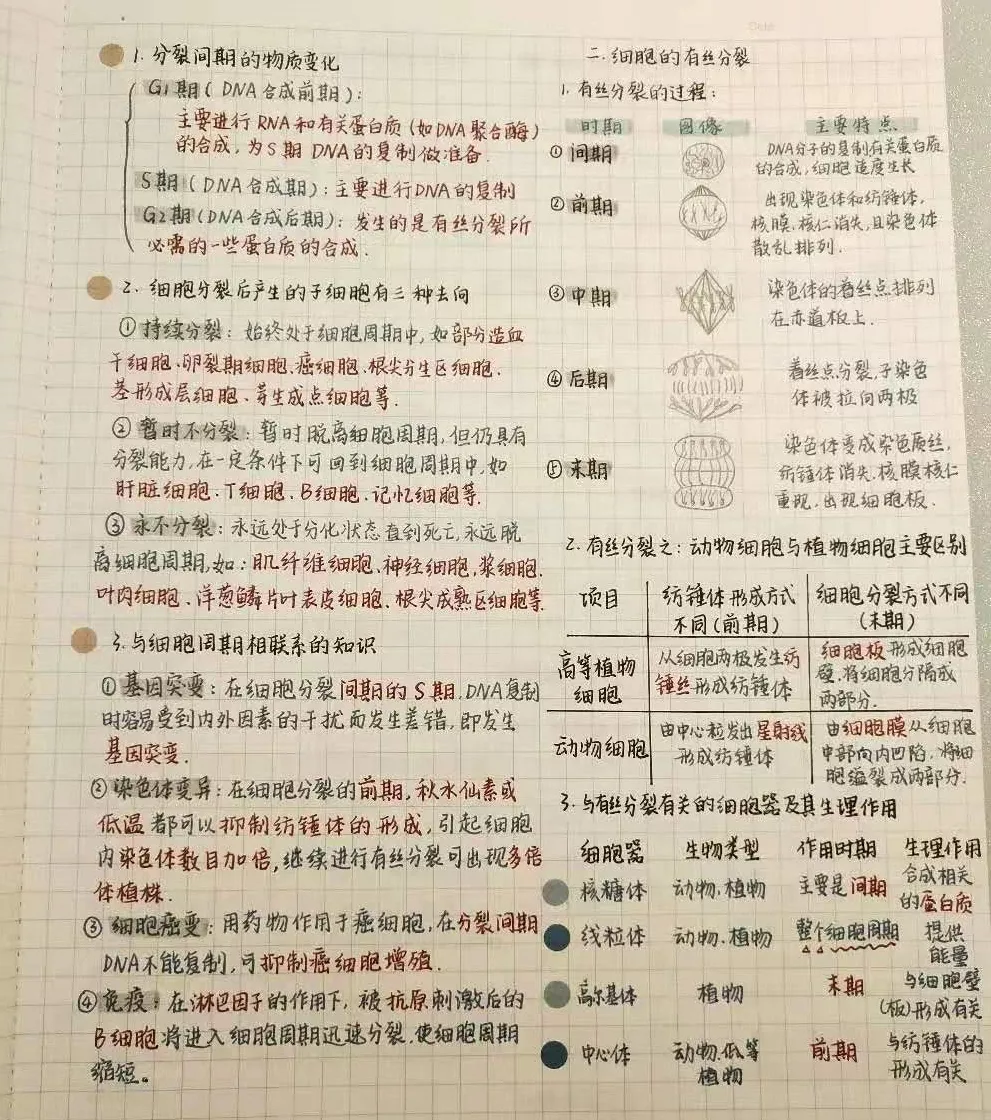 1. 分裂间期的物质变化
G1期(DNA合成前期):
主要进行RNA和有关蛋白质(如DNA聚合酶)
的合成,为S期DNA的复制做准备.
S期(DNA合成期):主要进行DNA的复制
G2期(DNA合成后期):发生的是有丝分裂所
必需的一些蛋白质的合成.
2. 细胞分裂后产生的子细胞有三种去向
①持续分裂:始终处于细胞周期中,如部分造血
干细胞、卵裂期细胞、癌细胞、根尖分生区细胞、
茎形成层细胞、芽生成点细胞等.
②暂时不分裂:暂时脱离细胞周期,但仍具有
分裂能力,在一定条件下可回到细胞周期中,如
肝脏细胞、T细胞、B细胞、记忆细胞等.
③永不分裂:永远处于分化状态直到死亡,永远脱
离细胞周期,如:肌纤维细胞、神经细胞,浆细胞.
叶肉细胞、洋葱鳞片叶表皮细胞、根尖成熟区细胞等.
3.与细胞周期相联系的知识
①基因突变:在细胞分裂间期的S期.DNA复制
时容易受到内外因素的干扰而发生差错,即发生
基因突变.
②染色体变异:在细胞分裂的前期,秋水仙素或
低温都可以抑制纺锤体的形成,引起细胞
内染色体数目加倍,继续进行有丝分裂可出现多倍
体植株.
③细胞癌变:用药物作用于癌细胞,在分裂间期
DNA不能复制,可抑制癌细胞增殖.
④免疫:在淋巴因子的作用下,被抗原刺激后的
B细胞将进入细胞周期迅速分裂.使细胞周期
缩短。
二.细胞的有丝分裂
1.有丝分裂的过程:
时期 图像 主要特点
①间期 DNA分子的复制有关蛋白质
的合成,细胞适度生长
②前期 出现染色体和纺锤体,
核膜、核仁消失,且染色体
散乱排列.
③中期 染色体的着丝点排列
在赤道板上.
④后期 着丝点分裂,子染色
体被拉向两极
⑤末期 染色体变成染色质丝,
纺锤体消失.核膜核仁
重现.出现细胞板.
2.有丝分裂之:动物细胞与植物细胞主要区别
项目 纺锤体形成方式 细胞分裂方式不同
不同(前期) (末期)
高等植物 从细胞两极发生纺 细胞板形成细胞
细胞 锤丝形成纺锤体 壁.将细胞分隔成
两部分.
动物细胞 由中心粒发出星射线 由细胞膜从细胞
形成纺锤体 中部向内凹陷,将细
胞缢裂成两部分.
3.与有丝分裂有关的细胞器及其生理作用
细胞器 生物类型 作用时期 生理作用
核糖体 动物.植物 主要是间期 合成相关
的蛋白质
线粒体 动物.植物 整个细胞周期 提供
能量
高尔基体 植物 末期 与细胞壁
(板)形成有关
中心体 动物.低等 前期 与纺锤体的
植物 形成有关